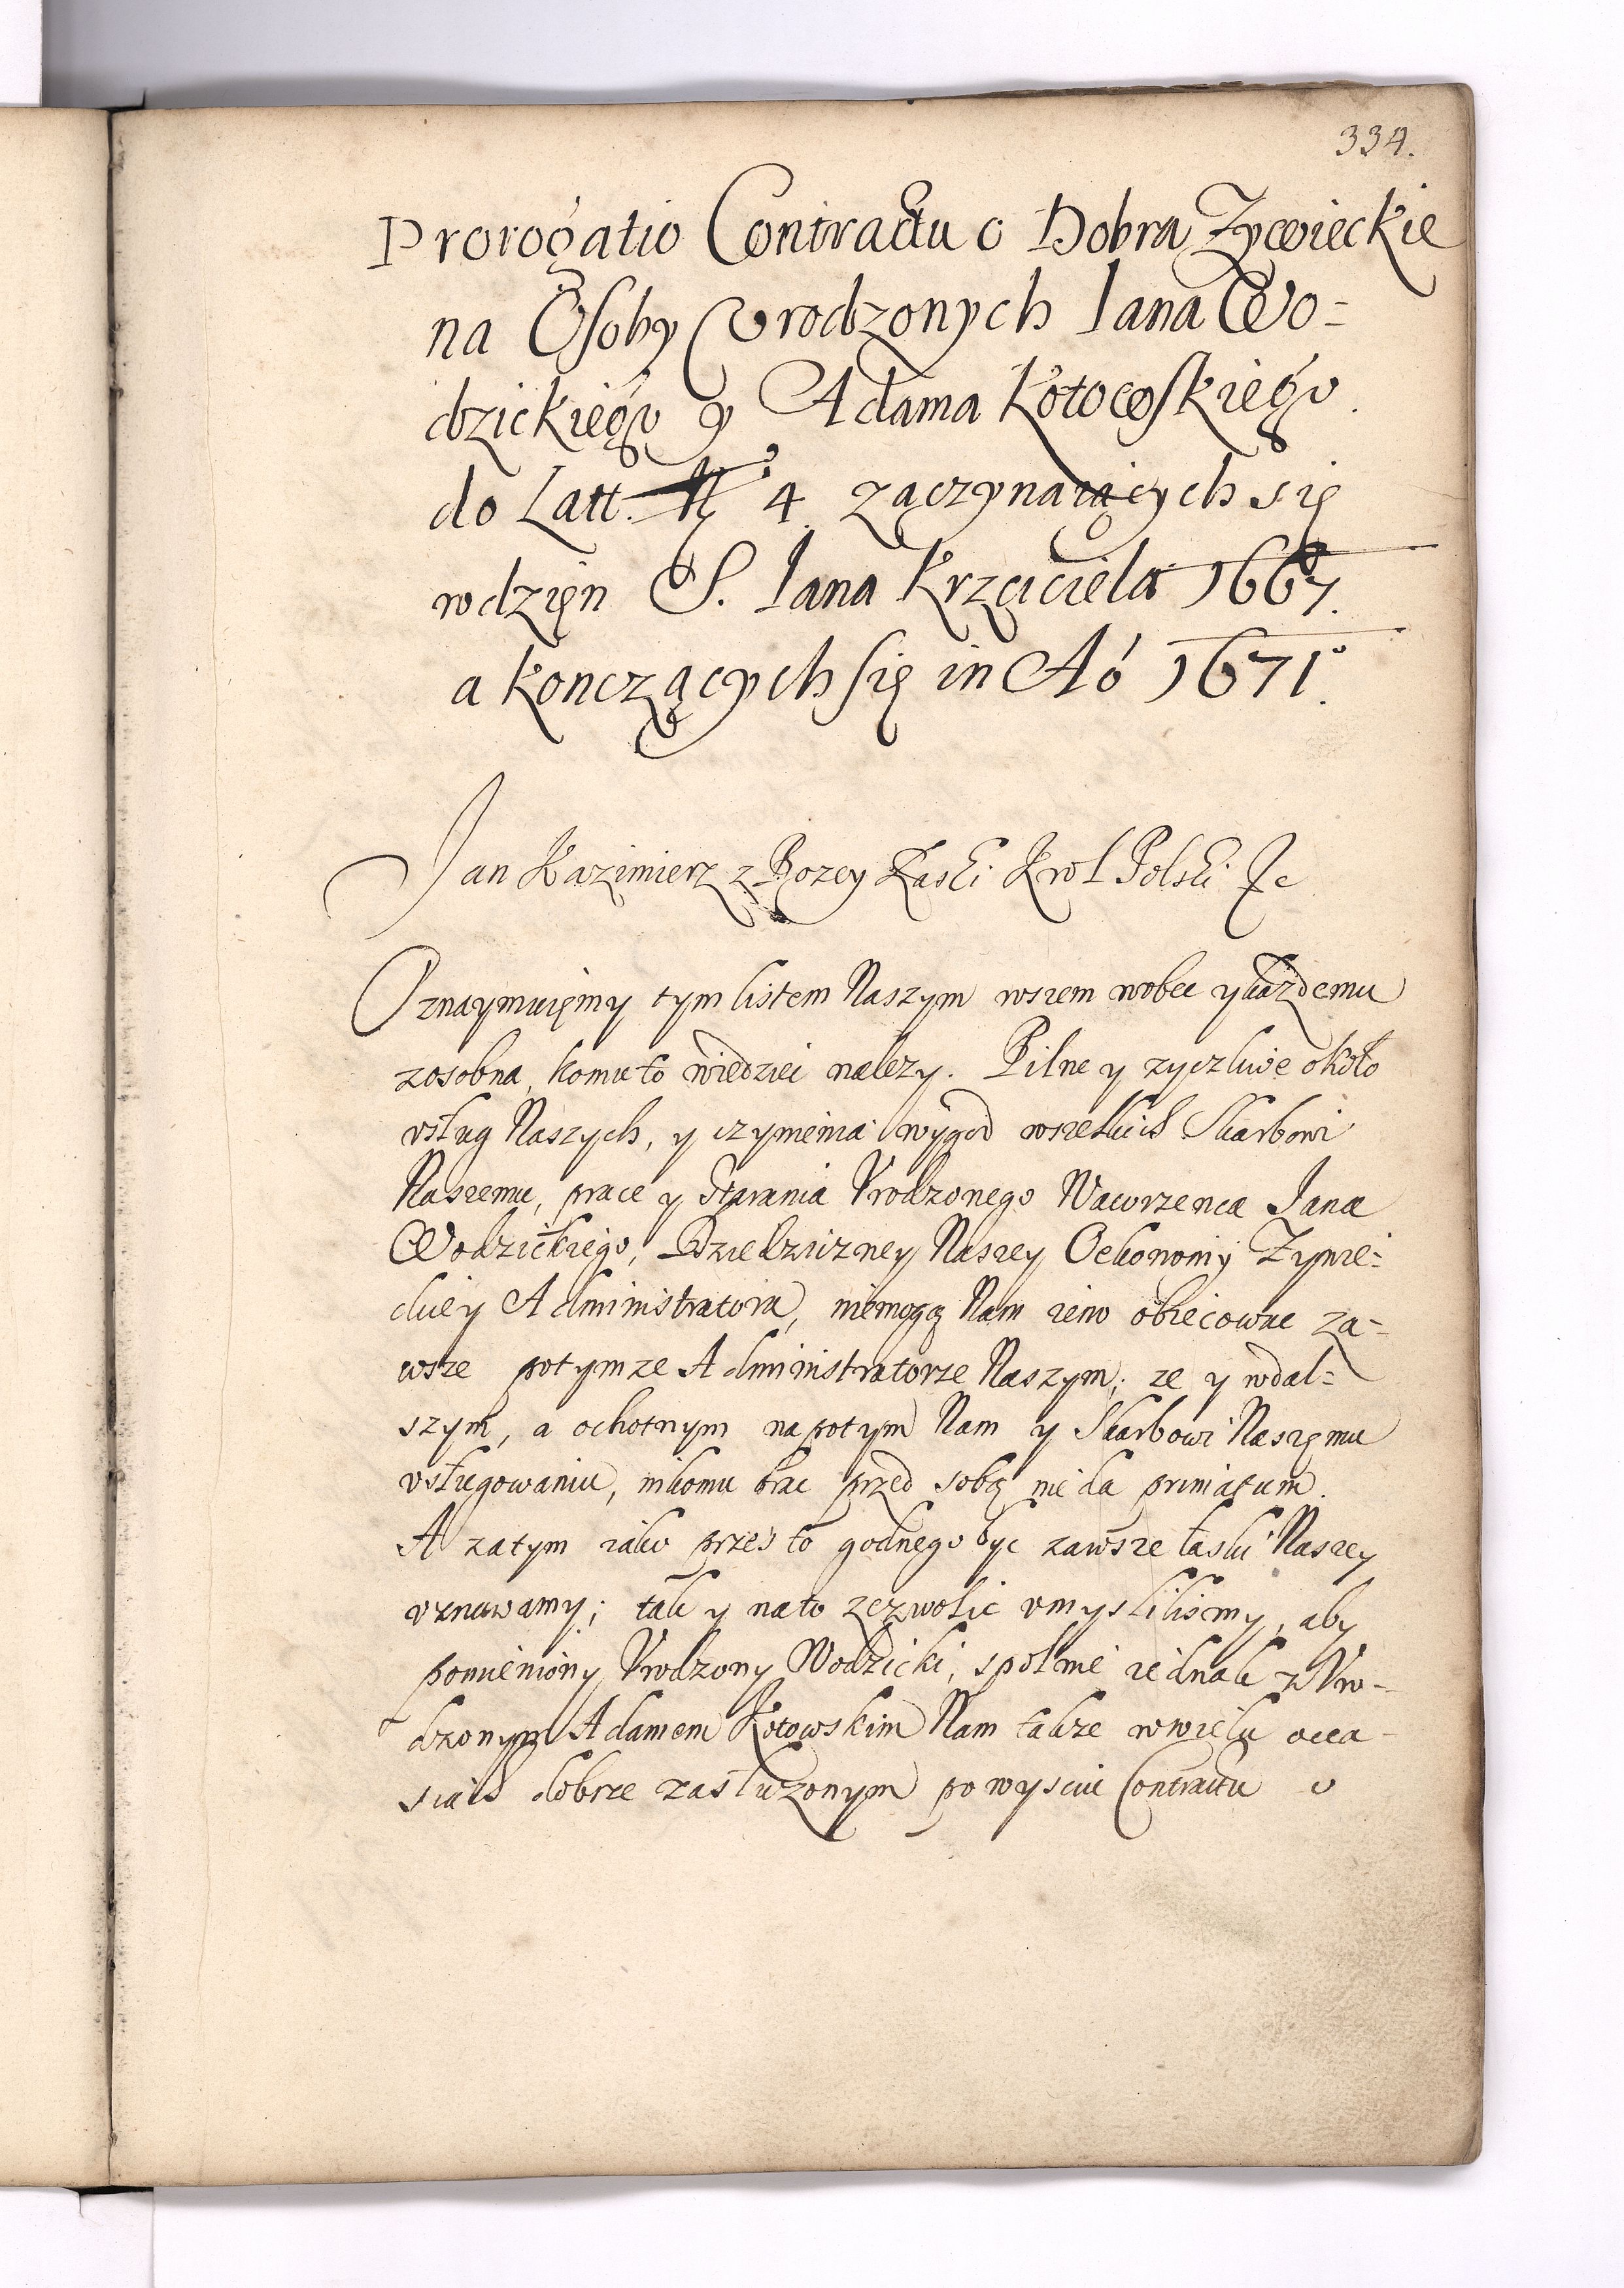 334.
Prorogatio Contractu o Dobra Zywieckie
na Osoby Vrodzonych Iana Wo=
dzickiego y Adama Kotowskiego.
do Latt. 4. zączynaiących się
wdzięn S. Iana Krzciciela 1667.
a konczących się in Aó 1671.
Jan Kazimierz z Bozey Łaski Krol Polski &c
Oznaymuięmy tym listem Naszym wszem wobec y kazdemu
zosobna, komu to wiedziec nalezy. Pilne y zyczliwe około
vsług Naszych, y czynienia wygod wszelkich Skarbowi
Naszemu, prace y starania Vrodzonego Wawrzenca Jana
Wodzickiego, Dziedziczney Naszey Oekonomij Zywie=
ckiey Administratora, niemogą Nam ieno obiecowac za=
wsze potymze Administratorze Naszym; ze y wdal=
szym, a ochotnym napotym Nam y Skarbowi Naszęmu
vsługowaniu, nikomu brac przed sobą nie da primatum.
A zatym iako przes to godnego byc zawsze łaski Naszey
vznawamy; tak y nato zezwolic vmyslilismy, aby
pomieniony Vrodzony Wodzicki, społnie iednak z Vro=
dzonym Adamem Kotowskim Nam takze wwielu occa=
siach dobrze zasłuzonym powysciu Contractu o